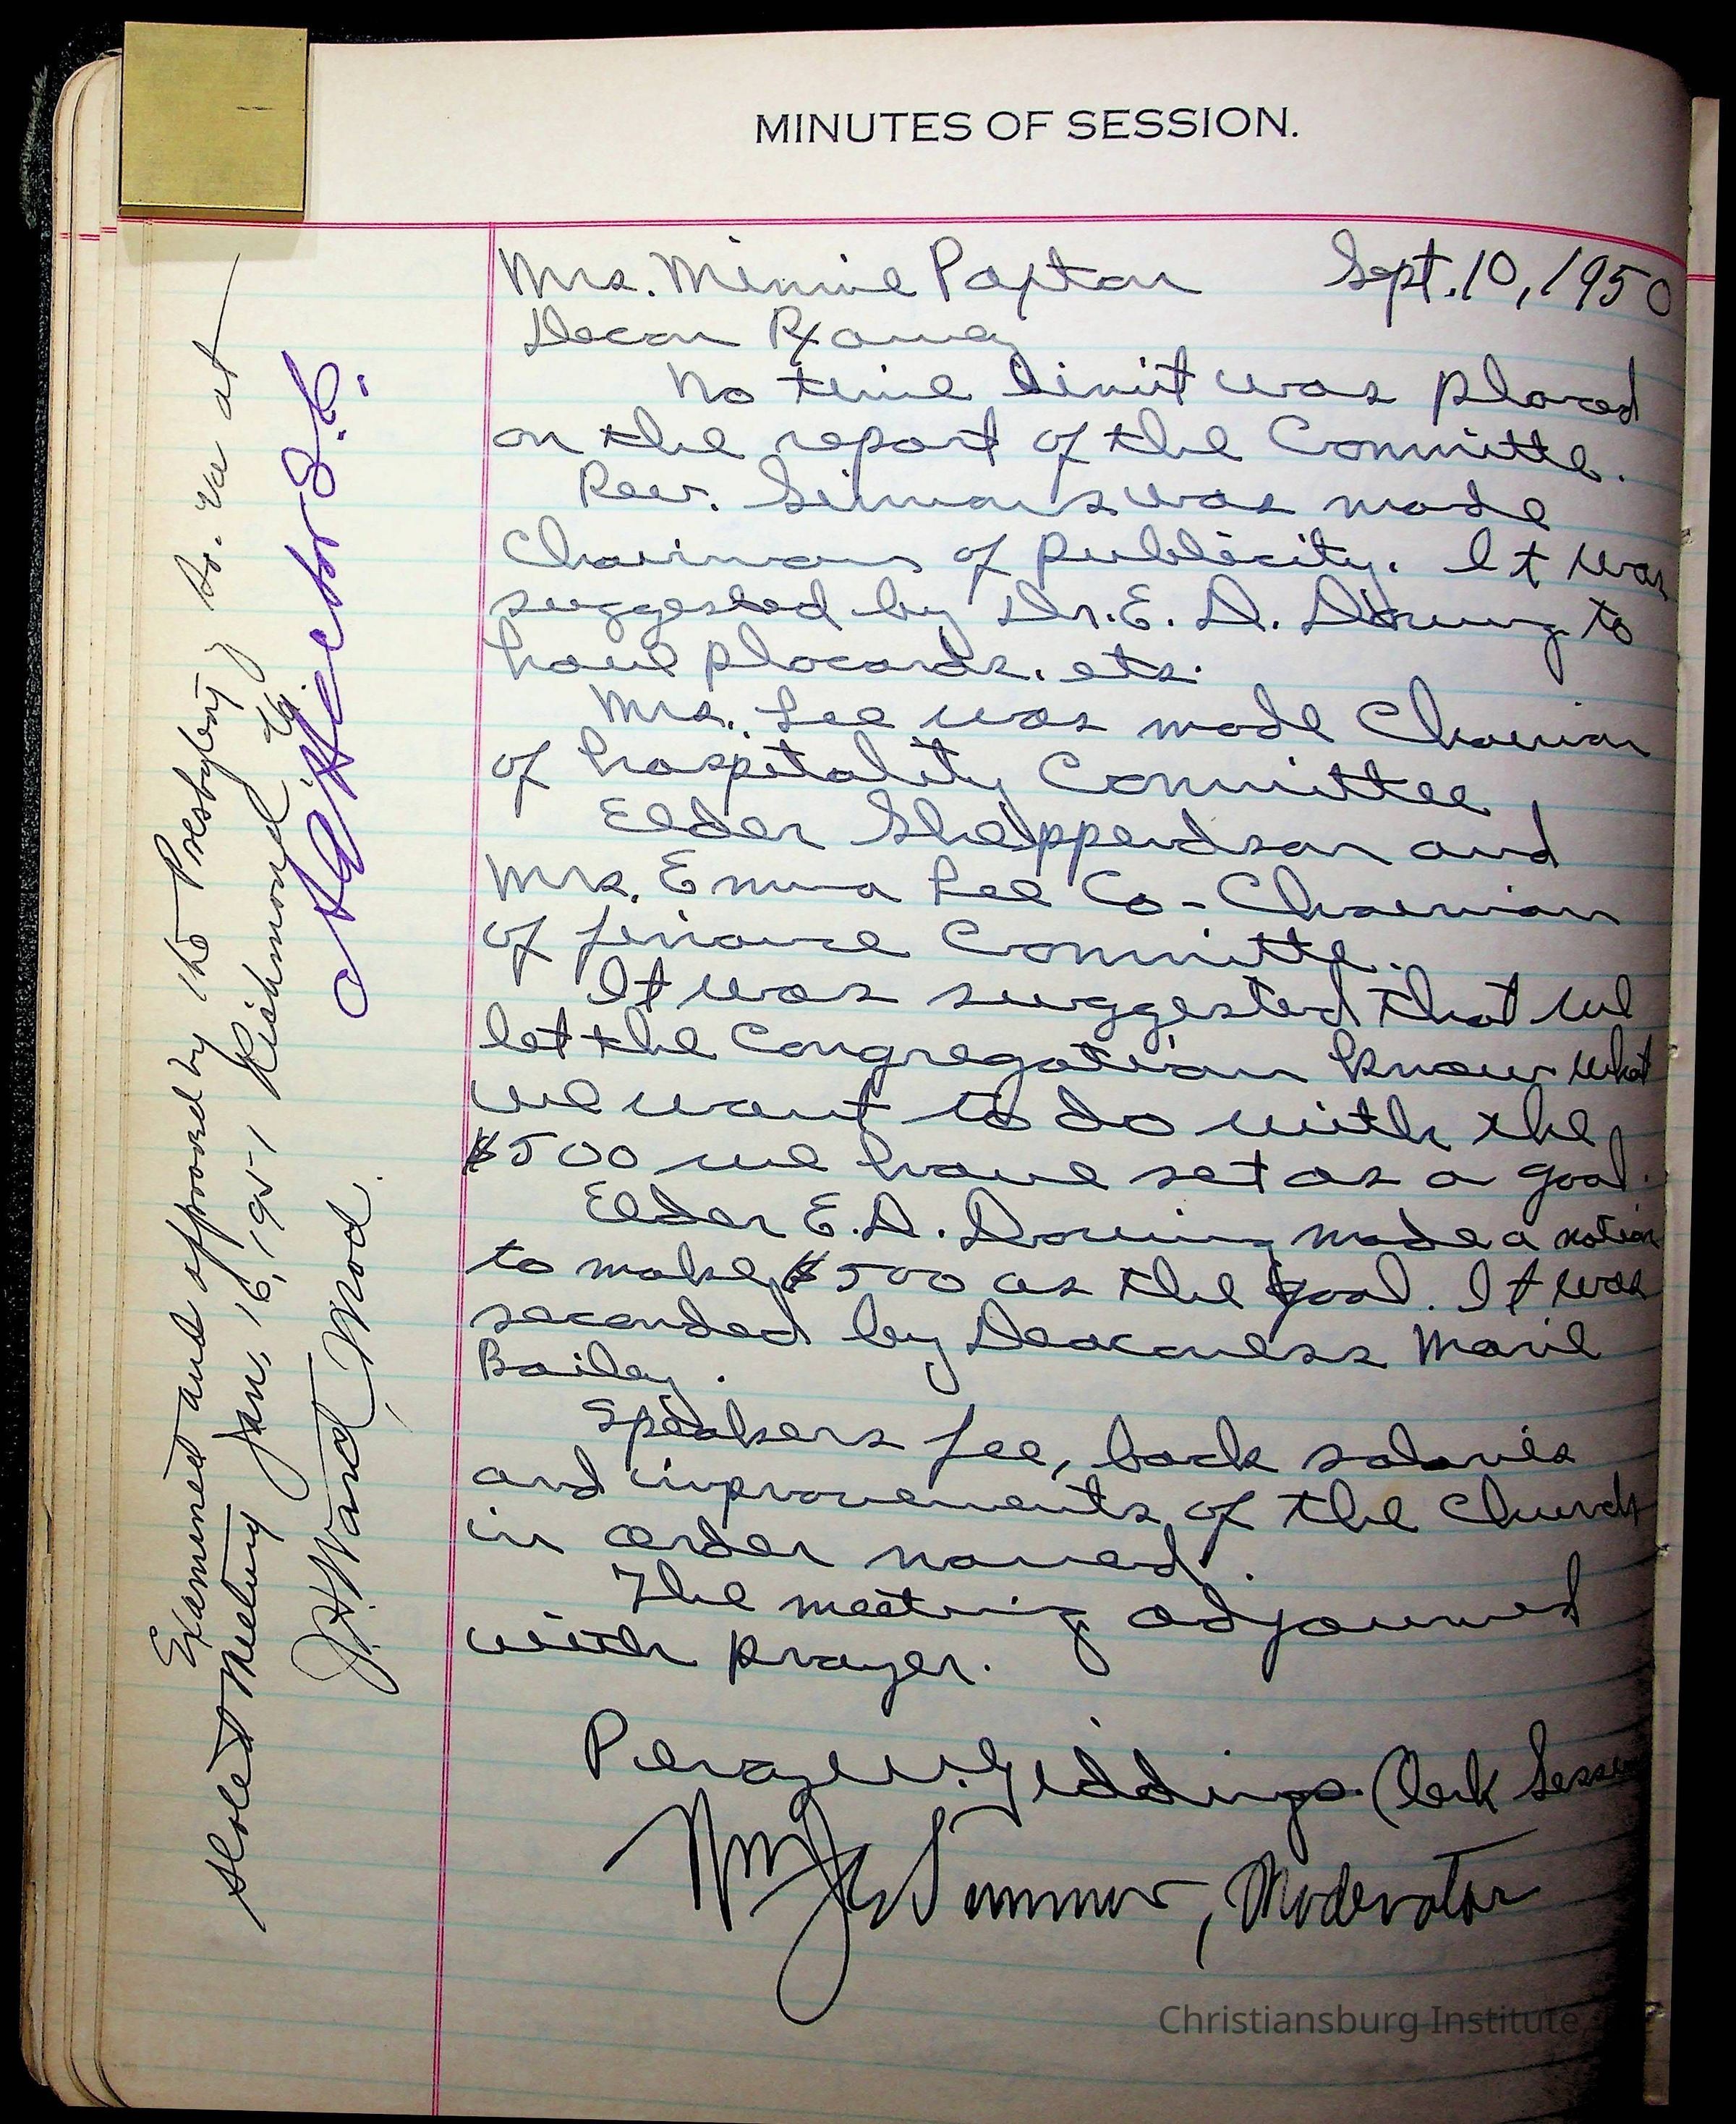 MINUTES OF SESSION.
Mrs. Minnie Paxton Sept. 10, 1950
Decon
No time limit was placed
on the report of the Committe.
Rev. Simmons was made
Chairman of publicity. It was
suggested by Dr. E. D. Downing to
have placards. ets.
Mrs. Lee was made Chairman
of hospitality Committee
Elder Shepperdson and
Mrs. Emma Lee Co-Chairman
of finance Committe.
It was suggested that we
let the Congregation know what
we want to do with the
$500 we have set as a goal.
Elder E. D. Downing made a motion
to make $500 as the goal. It was
seconded by Deaconess Marie
Bailey.
Speakers fee, back salaries
and improvements of the Church
in order named.
The meeting adjourned
with prayer.
Giddings. Clerk Session
Wm Simmons, Moderator
Examined and approved by the Presbytery So. Va at
Stated Meeting Jan, 16, 1951 Richmond Va.
J. H. Ward Mod. S. C.
Christiansburg Institute